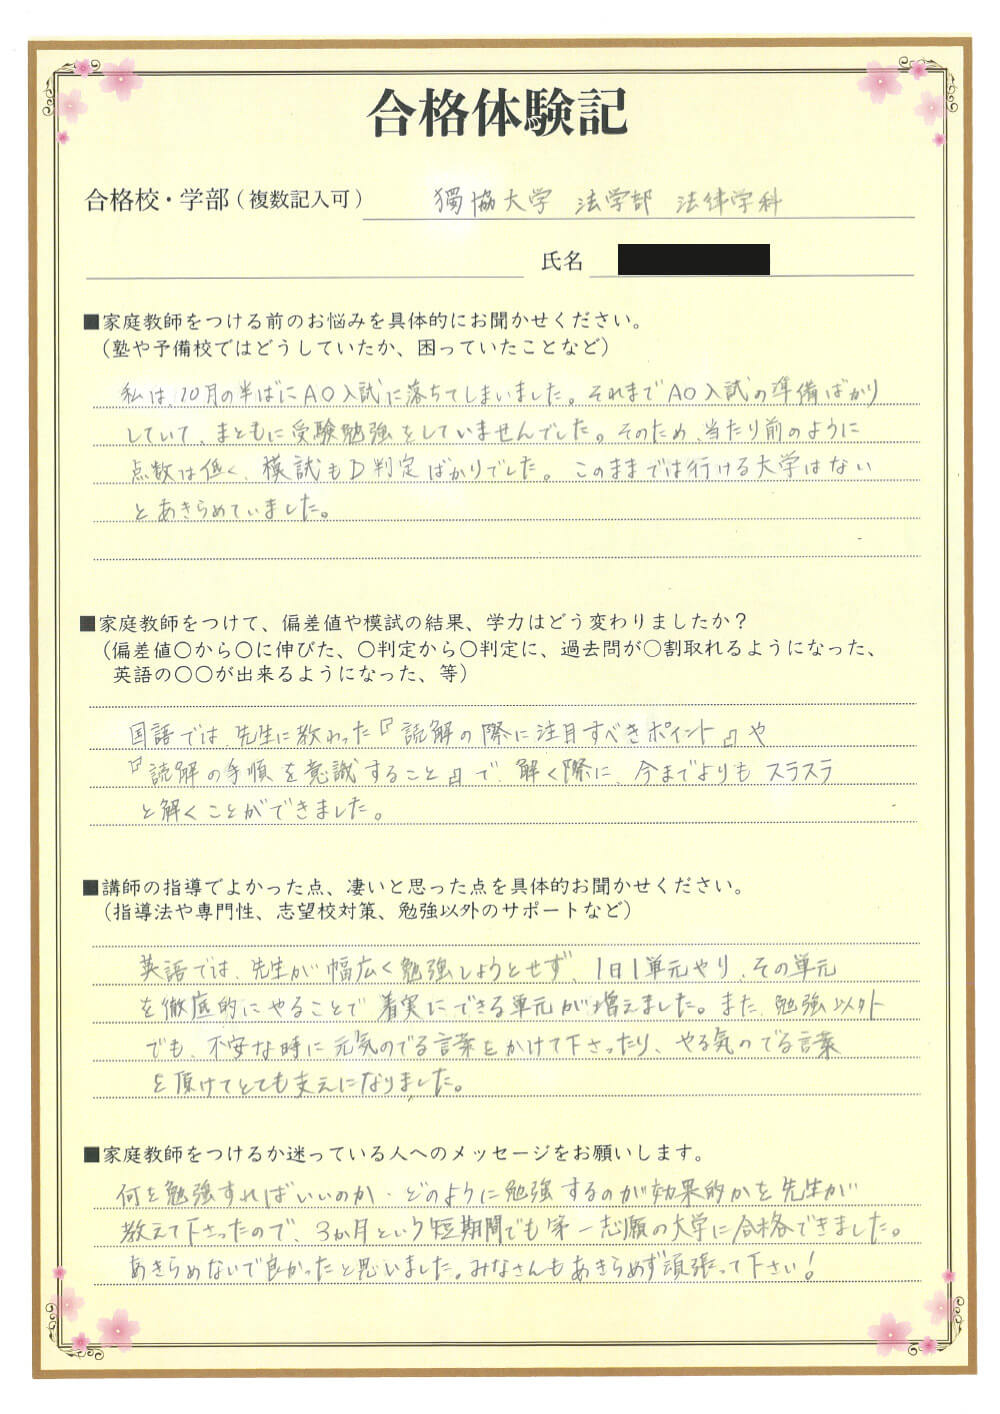 合格体験記
合格校・学部（複数記入可） 獨協大学 法学部 法律学科
氏名
■家庭教師をつける前のお悩みを具体的にお聞かせください。
（塾や予備校ではどうしていたか、困っていたことなど）
私は、10月の半ばにAO入試に落ちてしまいました。それまでAO入試の準備ばかり
していて、まともに受験勉強をしていませんでした。そのため、当たり前のように
点数は低く、模試もD判定ばかりでした。このままでは行ける大学はない
とあきらめていました。
■家庭教師をつけて、偏差値や模試の結果、学力はどう変わりましたか？
（偏差値〇から〇に伸びた、〇判定から〇判定に、過去問が〇割取れるようになった、
英語の〇〇が出来るようになった、等）
国語では、先生に教わった『読解の際に注目すべきポイント』や
『読解の手順を意識すること』で、解く際に、今までよりもスラスラ
と解くことができました。
■講師の指導でよかった点、凄いと思った点を具体的お聞かせください。
（指導法や専門性、志望校対策、勉強以外のサポートなど）
英語では、先生が幅広く勉強しようとせず、1日1単元やり、その単元
を徹底的にやることで着実にできる単元が増えました。また、勉強以外
でも、不安な時に元気のでる言葉をかけて下さったり、やる気のでる言葉
を頂けてとても支えになりました。
■家庭教師をつけるか迷っている人へのメッセージをお願いします。
何を勉強すればいいのか・どのように勉強するのが効果的かを先生が
教えて下さったので、3か月という短期間でも第一志願の大学に合格できました。
あきらめないで良かったと思いました。みなさんもあきらめず頑張って下さい！